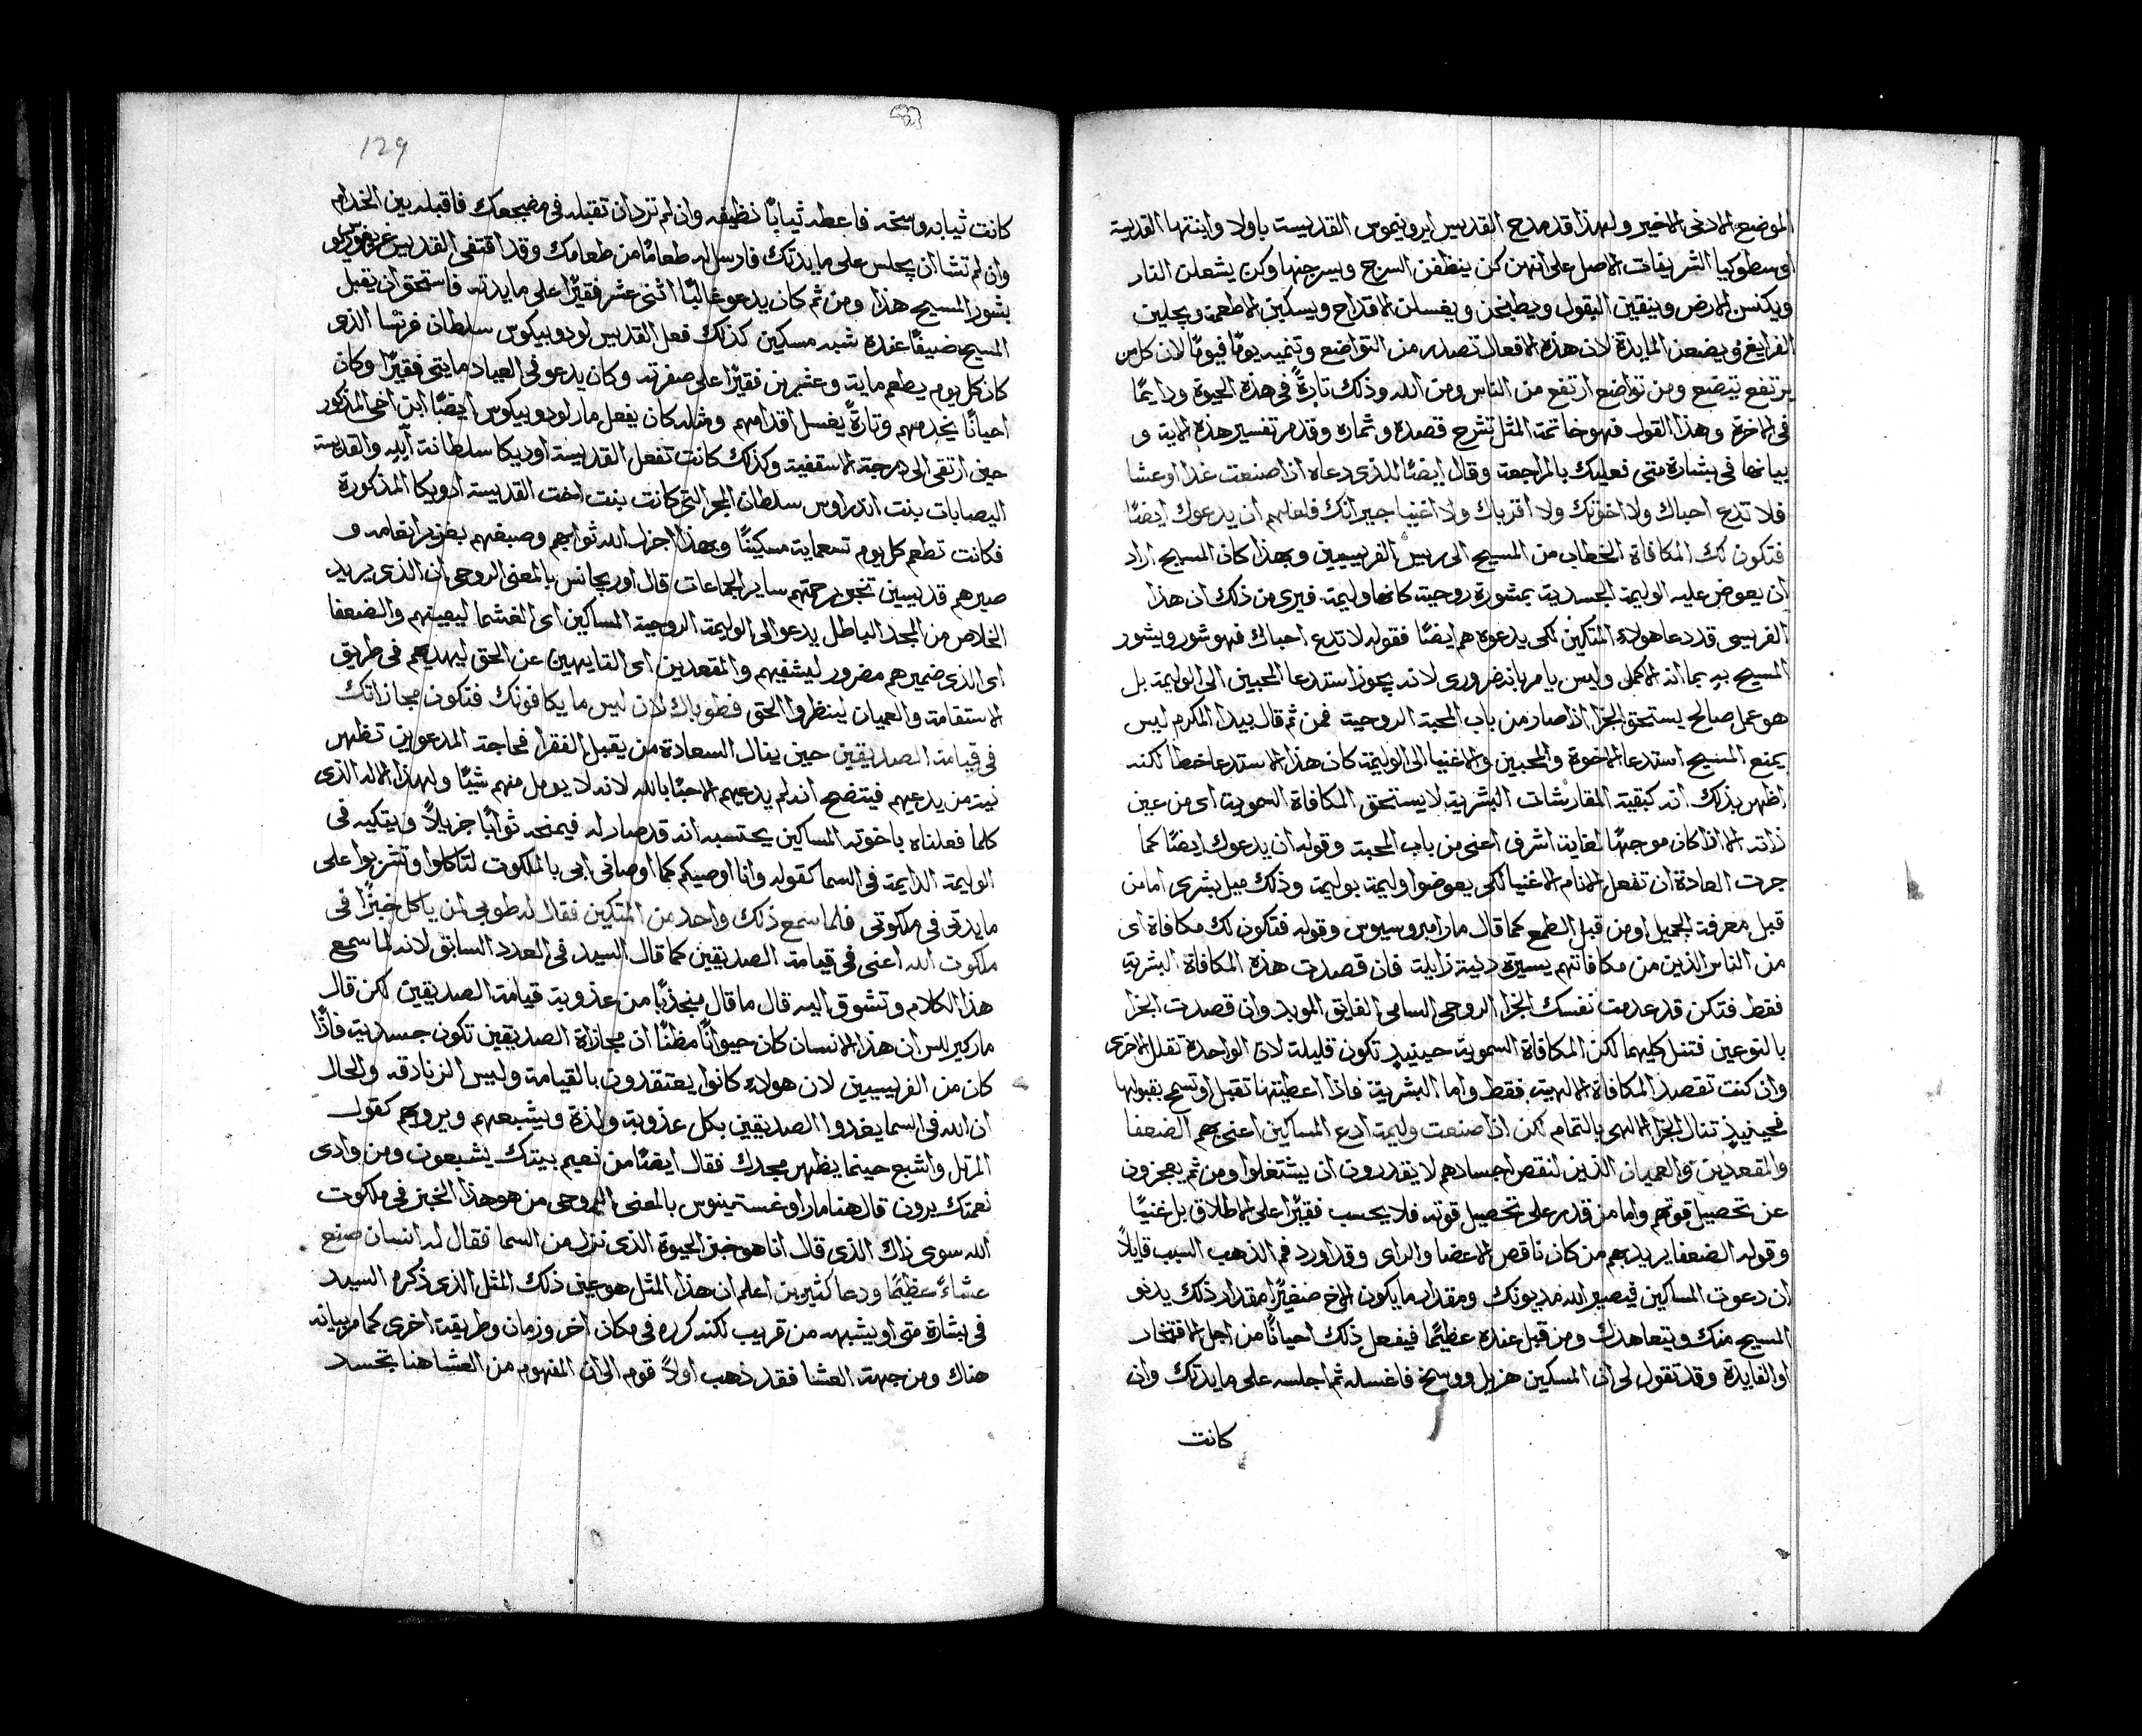 الموضع الادنى الاخير ولهذا قد مدح القديس ايرونيموس القديسة باولا وابنتها القديسة
اوسطوكيا الشريفات الاصل على انهن كن ينظفن السرج ويسرجنها وكن يشعلن النار
ويكنسن الارض وينقين البقول ويطبخن ويغسلن الاقداح ويسكبن الاطعمة ويجلين
الفرايغ ويضعن المايدة لان هذه الافعال تصدر من التواضع وتنميه يومًا فيومًا لان كل من
يرتفع يتضع ومن تواضع ارتفع من الناس ومن الله وذلك تارةً في هذه الحيوة ودايمًا
في الاخرة وهذا القول فهو خاتمة المثل تشرح قصده وثماره وقد مر تفسير هذه الاية و
بيانها في بشارة متى فعليك بالمراجعة وقال ايضًا للذى دعاه اذا صنعت غدا او عشا
فلا تدع احباك ولا اخوتك ولا اقرباك ولا اغنيا جيرانك فلعلهم ان يدعوك ايضًا
فتكون لك المكافاة الخطاب من المسيح الى ريس الفريسيين وبهذا كان المسيح اراد
ان يعوض عليه الوليمة الجسدية بمشورة روحية كانها وليمة فيرى من ذلك ان هذا
الفريسى قد دعا هولاء المتكين لكى يدعوه هم ايضًا فقوله لا تدع احباك فهو شور ويشور
المسيح به بما انه الاكمل وليس يامر بانه ضرورى لانه يجوز استدعا المحبين الى الوليمة بل
هو عمل صالح يستحق الجزا اذا صار من باب المحبة الروحية فمن ثم قال بيدا المكرم ليس
يمنع المسيح استدعا الاخوة والمحبين والاغنيا الى الوليمة كان هذا الاستدعا خطا لكنه
اظهر بذلك انه كبقية المقارشات البشرية لا يستحق المكافاة السموية اى من عين
ذاته الا اذا كان موجهًا لغاية اشرف اعنى من باب المحبة وقوله ان يدعوك ايضًا كما
جرت العادة ان تفعل الانام الاغنيا لكى يعوضوا وليمة بوليمة وذلك ميل بشرى اما من
قبل معرفة الجميل او من قبل الطمع كما قال مار امبروسيوس وقوله فتكون لك مكافاة اى
من الناس الذين من مكافاتهم يسيرة دنية زايلة فان قصدت هذه المكافاة البشرية
فقط فتكن قد عدمت نفسك الجزا الروحى السامى الفايق الموبد وان قصدت الجزا
بالنوعين فتنل كليهما لكن المكافاة السموية حينيذٍ تكون قليلة لان الواحدة تقلل الاخرى
وان كنت تقصد المكافاة الالهية فقط واما البشرية فاذا اعطيتها تقبل او تسمح بقبولها
فحينيذٍ تنال الجزا الالهى بالتمام لكن اذا صنعت وليمة ادع المساكين اعنى بهم الضعفا
والمقعدين والعميان الذين لنقص اجسادهم لا يقدرون ان يشتغلوا ومن ثم يعجزون
عن تحصيل قوتهم واما من قدر على تحصيل قوته فلا يحسب فقيرًا على الاطلاق بل غنيًا
وقوله الضعفا يريد بهم من كان ناقص الاعضا والراى وقد اورد فم الذهب السبب قايلاً
ان دعوت المساكين فيصير الله مديونك ومقدار ما يكون الاخ صغيرًا مقدار ذلك يدنو
المسيح منك ويتعاهدك ومن قبل عنده عظيمًا فيفعل ذلك احيانًا من اجل الافتخار
او الفايدة وقد تقول لى ان المسكين هزيل ووسخ فاغسله ثم اجلسه على مايدتك وان
كانت
129
كانت ثيابه وسخه فاعطه ثيابًا نظيفه وان لم ترد ان تقبله في مضجعك فاقبله بين الخدام
وان لم تشا ان يجلس على مايدتك فارسل له طعامًا من طعامك وقد اقتفى القديس غريغوريو
بشور المسيح هذا ومن ثم كان يدعو غالبًا اثنى عشر فقيرًا على مايدته فاستحق ان يقبل
المسيح ضيفًا عنده شبه مسكين كذلك فعل القديس لودوبيكوس سلطان فرنسا الذى
كان كل يوم يطعم ماية وعشرين فقيرًا على صفرته وكان يدعو في العياد مايتى فقيرًا وكان
احيانًا يخدمهم وتارةً يغسل اقدامهم ومثله كان يفعل مار لودوبيكوس ايضًا ابن اخى المذكور
حين ارتقى الى درجة الاسقفية وكذلك كانت تفعل القديسة اوديكا سلطانة والقديسة
اليصابات بنت اندراوس سلطان المجر التى كانت بنت اخت القديسة ادويكا المذكورة
فكانت تطعم كل يوم تسعماية مسكينًا وبهذا اجزل الله ثوابهم وصبغهم بغزير انعامه و
صيرهم قديسين تخبر برحمتهم ساير الجماعات قال اوريجانس بالمعنى الروحى ان الذى يريد
الخلاص من المجد الباطل يدعو الى الوليمة الروحية المساكين اى الغشما ليعينهم والضعفا
اى الذى ضميرهم مضرور ليشفيهم والمقعدين اى التايهين عن الحق ليهديهم في طريق
الاستقامة والعميان لينظروا الحق فطوباك لان ليس ما يكافونك فتكون مجازاتك
في قيامة الصديقين حين ينال السعادة من يقبل الفقرا فحاجة المدعوين تظهر
نية من يدعيهم فيتضح انه لم يدعيهم الا حبًا بالله لانه لا يومل منهم شيًا ولهذا الاله الذى
كلما فعلناه باخوته المساكين يحتسبه انه قد صار له فيمنحه ثوابًا جزيلاً ويتكيه في
الوليمة الدايمة في السما كقوله وانا اوصيكم كما اوصانى ابى بالملكوت لتاكلوا وتشربوا على
مايدتى في ملكوتى فلما سمع ذلك واحد من المتكين فقال له طوبى لمن ياكل خبزًا في
ملكوت الله اعنى في قيامة الصديقين كما قال السيد في العدد السابق لانه لما سمع
هذا الكلام وتشوق اليه قال ما قال منجذبًا من عذوبة قيامة الصديقين لكن قال
مار كيرلس ان هذا الانسان كان حيوانًا مظنًا ان مجازاة الصديقين تكون جسدية فاذًا
كان من الفريسيين لان هولاء كانوا يعتقدون بالقيامة وليس الزنادقه والحال
ان الله في السما يغدوا الصديقين بكل عذوبة ولذة ويشبعهم ويرويهم كقول
المرتل واشبع حينما يظهر مجدك فقال ايضًا من نعيم بيتك يشبعون ومن وادى
نعمتك يرون قال هنا مار اوغستينوس بالمعنى الروحى من هو هذا الخبز في ملكوت
الله سوى ذاك الذى قال انا هو خبز الحيوة الذى نزل من السما فقال له انسان صنع
عشاءً عظيمًا ودعا كثيرين اعلم ان هذا المثل هو عين ذلك المثل الذى ذكره السيد
في بشارة متى او يشبهه من قريب لكنه كرره في مكان اخر وزمان وطريقة اخرى كما مر بيانه
هناك ومن جهة العشا فقد ذهب اولاً قوم الى ان المفهوم من العشا هنا بتجسد